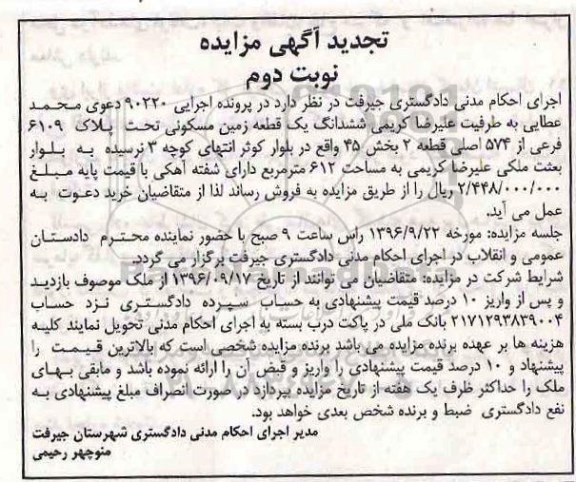 تجدید آگهی مزایده
نوبت دوم
اجرای احکام مدنی دادگستری جیرفت در نظر دارد در پرونده اجرایی ۹۰۲۲۰ دعوی محمد
عطایی به طرفیت علیرضا کریمی ششدانگ یک قطعه زمین مسکونی تحت پلاک ۶۱۰۹
فرعی از ۵۷۴ اصلی قطعه ۲ بخش ۴۵ واقع در بلوار کوثر انتهای کوچه ۳ نرسیده به بلوار
بعثت ملکی علیرضا کریمی به مساحت ۶۱۲ مترمربع دارای شفته آهکی با قیمت پایه مبلغ
۲/۴۴۸/۰۰۰/۰۰۰ ریال را از طریق مزایده به فروش رساند لذا از متقاضیان خرید دعوت به
عمل می آید.
جلسه مزایده: مورخه ۱۳۹۶/۹/۲۲ راس ساعت ۹ صبح با حضور نماینده محترم دادستان
عمومی و انقلاب در اجرای احکام مدنی دادگستری جیرفت برگزار می گردد.
شرایط شرکت در مزایده: متقاضیان می توانند از تاریخ ۱۳۹۶/۰۹/۱۷ از ملک موصوف بازدید
و پس از واریز ۱۰ درصد قیمت پیشنهادی به حساب سپرده دادگستری نزد حساب
۲۱۷۱۲۹۳۸۳۹۰۰۴ بانک ملی در پاکت درب بسته به اجرای احکام مدنی تحویل نمایند کلیه
هزینه ها بر عهده برنده مزایده می باشد برنده مزایده شخصی است که بالاترین قیمت را
پیشنهاد و ۱۰ درصد قیمت پیشنهادی را واریز و قبض آن را ارائه نموده باشد و مابقی بهای
ملک را حداکثر ظرف یک هفته از تاریخ مزایده بپردازد در صورت انصراف مبلغ پیشنهادی به
نفع دادگستری ضبط و برنده شخص بعدی خواهد بود.
مدیر اجرای احکام مدنی دادگستری شهرستان جیرفت
منوچهر رحیمی